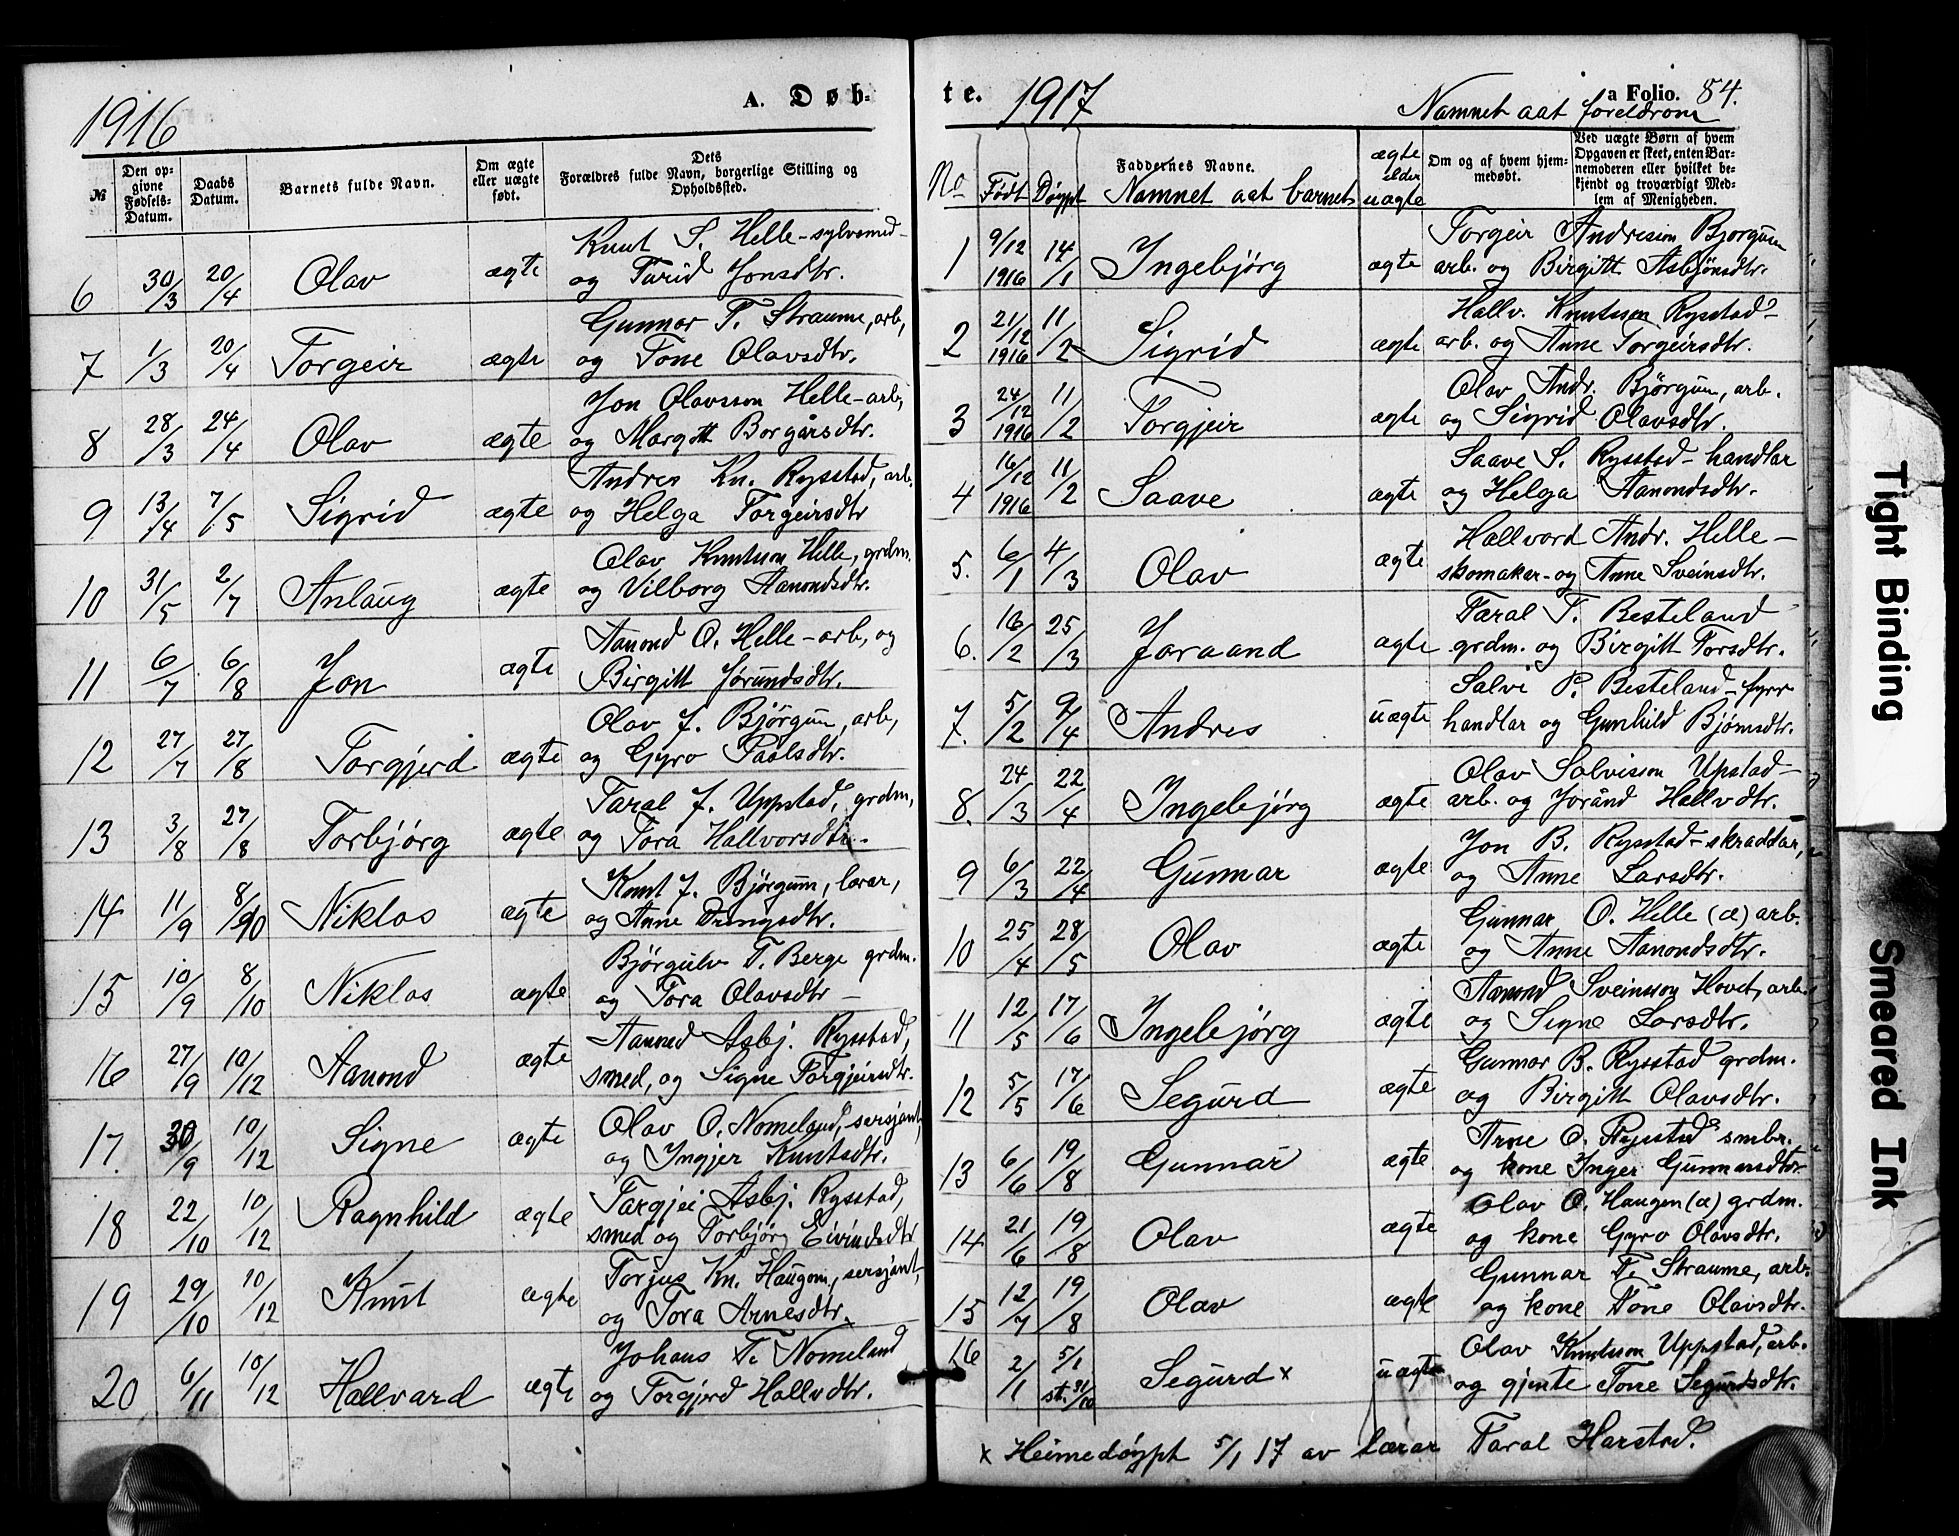 1916
A. Døb-
№
Den op-
givne
Fødsels-
Datum.
Daabs
Datum.
Barnets fulde Navn.
Om ægte
eller uægte
født.
Dets
Forældres fulde Navn, borgerlige Stilling og
Opholdssted.
6 30/3 20/4 Olav ægte Knut S. Helle - sylvsmed - og Turid Jonsdtr.
7 1/3 20/4 Torgeir ægte Gunnar T. Straume, arb, og Tone Olavsdtr.
8 28/3 24/4 Olav ægte Jon Olavsson Helle - arb, og Margitt Borgårsdtr.
9 13/4 7/5 Sigrid ægte Andres Kn. Rysstad, arb. og Helga Torgeirsdtr
10 31/5 2/7 Anlaug ægte Olav Knutson Helle, grdm. og Vilborg Aanondsdtr.
11 6/7 6/8 Jon ægte Aanond O. Helle - arb, og Birgitt Jørundsdtr.
12 27/7 27/8 Torgjerd ægte Olav J. Bjørgum, arb, og Gyro Paalsdtr.
13 3/8 27/8 Torbjørg ægte Taral J. Uppstad, grdm, og Tora Hallvorsdtr.
14 11/9 8/10 Niklas ægte Knut J. Bjørgum, lærar, og Anne Drengsdtr.
15 10/9 8/10 Niklas ægte Bjørgulv T. Berge grdm. og Tora Olavsdtr -
16 27/9 10/12 Aanond ægte Aanond Asbj. Rysstad, smed, og Signe Torgjeirsdtr.
17. 30/9 10/12 Signe ægte Olav O. Nomeland, sersjant, og Ingjer Knutsdtr.
18 22/10 10/12 Ragnhild ægte Targjei Asbj. Rysstad, smed og Torbjørg Eivindsdtr
19 29/10 10/12 Knut ægte Torjus Kn. Haugom, sersjant, og Tora Arnesdtr.
20 6/11 10/12 Hallvard ægte Johans T. Nomeland og Torgjerd Hallvdtr.
te. 1917
a Folio. 84.
Namnet aat foreldrom
No Født Døypt
Faddernes Navne.
Namnet aat barnet
ægte elder uægte
Om og af hvem hjem-
medøbt.
Ved uægte Børn af hvem
Opgaven er skeet, enten Bar-
nemoderen eller hvilket be-
kjendt og troværdigt Med-
lem af Menigheden.
1 9/12 1916 14/1 Ingebjørg ægte Torgeir Andresson Bjørgum arb. og Birgitt Asbjønsdtr.
2 21/12 1916 11/2 Sigrid ægte Hallv. Knutson Rysstad - arb. og Anne Torgeirsdtr.
3 24/12 1916 11/2 Torgjeir ægte Olav Andr. Bjørgum, arb. og Sigrid Olavsdtr.
4 16/12 1916 11/2 Saave ægte Saave S. Rysstad - handlar og Helga Aanondsdtr.
5. 6/1 4/3 Olav ægte Hallvard Andr. Helle - skomakar - og Anne Sveinsdtr.
6. 16/2 25/3 Joraand ægte Taral T. Besteland grdm. og Birgitt Torsdtr.
7. 5/2 9/4 Andres uægte Salvi P. Besteland - fyrr handlar og Gunhild Bjørnsdtr.
8. 24/3 22/4 Ingebjørg ægte Olav Salvisson Upstad - arb. og Joránd Hallvdtr.
9 6/3 22/4 Gunnar ægte Jon B. Rysstad - skraddar, og Anne Larsdtr.
10 25/4 28/5 Olav ægte Gunnar O. Helle (æ) arb. og Anne Aanondsdtr.
11 12/5 17/6 Ingebjørg ægte Aanond Sveinsson Hovet, arb. og Signe Larsdtr.
12 5/5 17/6 Segurd ægte Gunnar B. Rysstad grdm. og Birgitt Olavsdtr.
13 6/6 19/8 Gunnar ægte Arne O. Rysstad smbr. og kone Inger Gunnarsdtr
14 21/6 19/8 Olav ægte Olav O. Haugen (æ) grdm. og kone Gyro Olavsdtr.
15 12/7 19/8 Olav ægte Gunnar T. Straume, arb. og kone Tone Olavsdtr.
16 2/1 5/1 st. 31/10 Segurd x uægte Olav Knutson Uppstad, arb. og gjente Tone Segurdsdtr.
x Heimedøypt 5/1 17 av lærar Taral Harstad.
Tight Binding
Smeared Ink